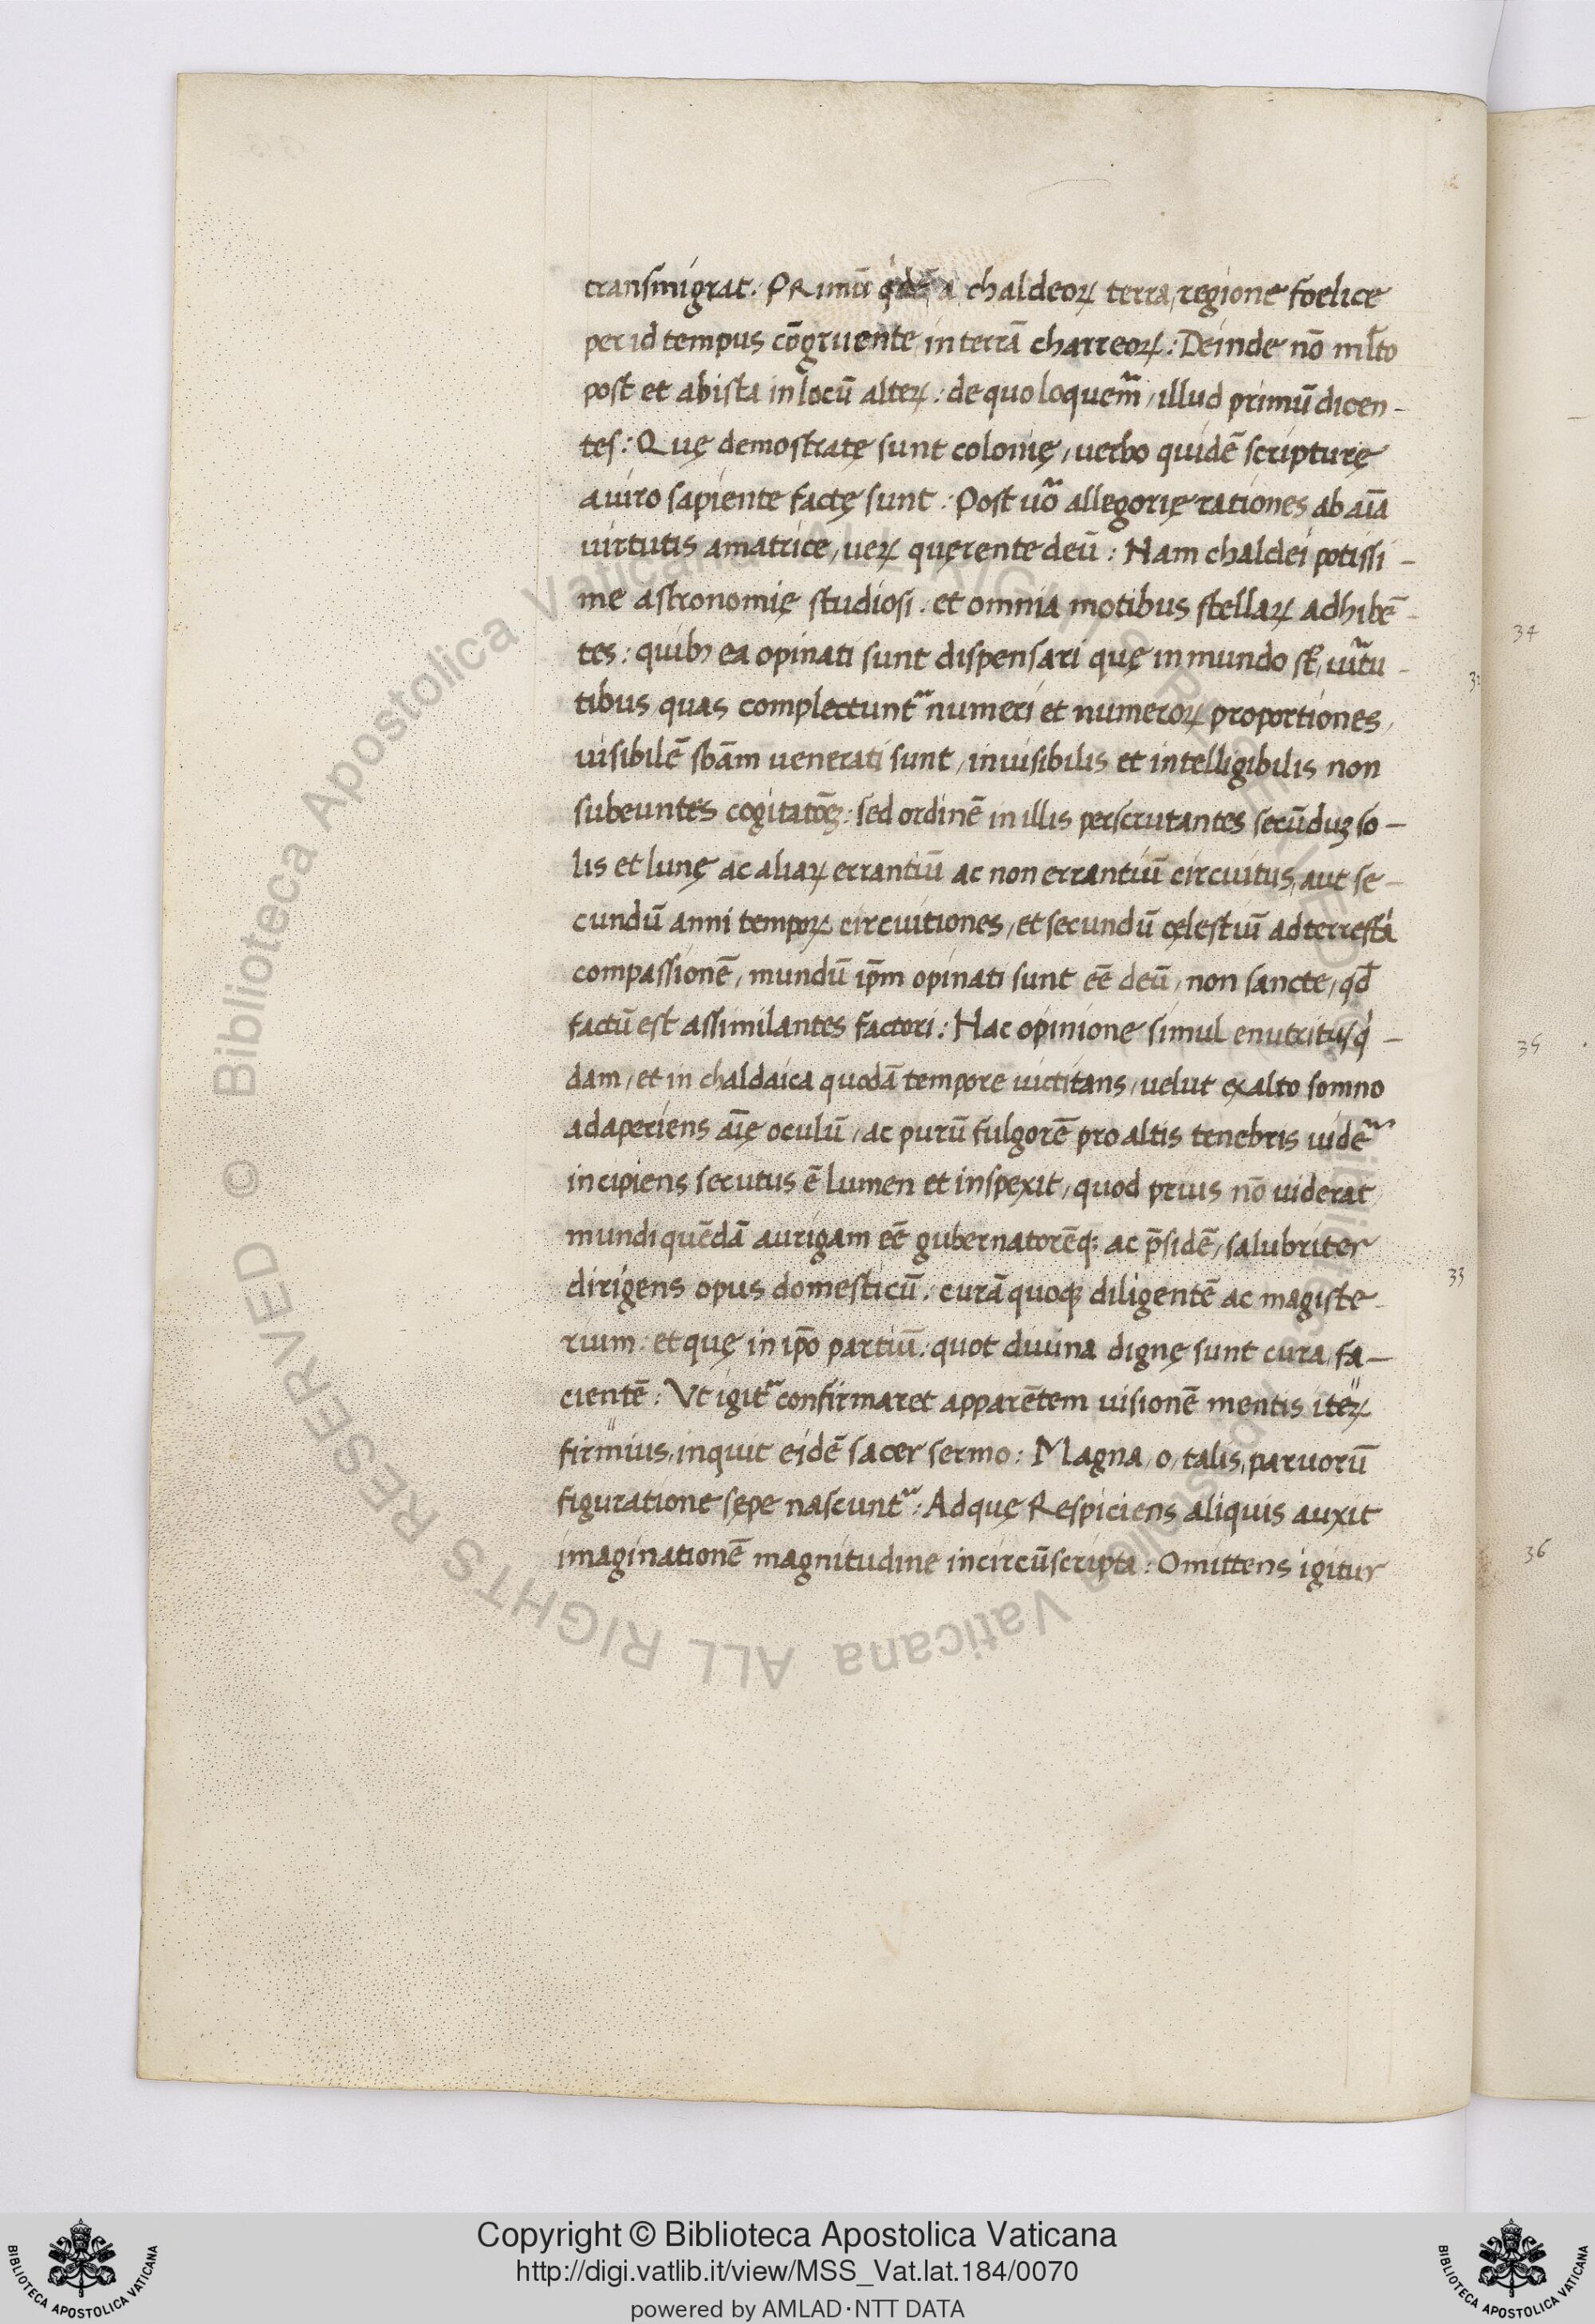 transmigrat. PRimū qͥdē a chaldeoꝝ terra, regione foelice
per id tempus cōgruente, in terrā charreoꝝ: Deinde nō mlꝉto
post et abista in locū alteꝝ: de quo loquem̃, illud primū dicen-
tes: Quę demostratę sunt colonię, uerbo quidē scripturę
a uiro sapiente factę sunt: Post uõ allegorię rationes ab aīa
uirtutis amatrice, ueꝝ quęrente deū: Nam chaldei potissi-
me astronomię studiosi. et omnia motibus stellaꝝ adhibē-
tes: quibꝫ ea opinati sunt dispensari quę in mundo st̄, uir̃tu-
tibus quas complectunt̃ numeri et numeroꝝ proportiones,
uisibilē sbām uenerati sunt, inuisibilis et intelligibilis non
subeuntes cogitatōeꝫ: sed ordinē in illis perscrutantes secūduꝫ so-
lis et lunę ac aliaꝝ errantiū ac non errantiū circuitus, aut se-
cundū anni tempoꝝ circuitiones, et secundū cęlestiū ad terrestͥa
compassionē, mundū ip̄m opinati sunt eē deū, non sancte, qđ
factū est assimilantes factori: Hac opinione simul enutritus qͥ-
dam, et in chaldaica quodā tempore uictitans, uelut ex alto somno
adaperiens aīę oculū, ac purū fulgorē pro altis tenebris uidē̃
incipiens secutus ē lumen et inspexit, quod prius nō uiderat
mundi quēdā aurigam eē gubernatorēqꝫ ac p̄sidē, salubriter
dirigens opus domesticū. curā quoqꝫ diligentē ac magiste-
rium: et quę in ip̄o partiū: quot diuina dignę sunt cura, fa-
cientē: Vt igit̃ confirmaret apparētem uisionē mentis iteꝝ
firmius, inquit eidē sacer sermo: Magna, o, talis, paruorū
figuratione sępe nascunt̃: Ad quę Respiciens aliquis auxit
imaginationē magnitudine incircūscripta: Omittens igitur
34
35
33
36
Copyright © Biblioteca Apostolica Vaticana
http://digi.vatlib.it/view/MSS_Vat.lat.184/0070
powered by AMLAD·NTT DATA